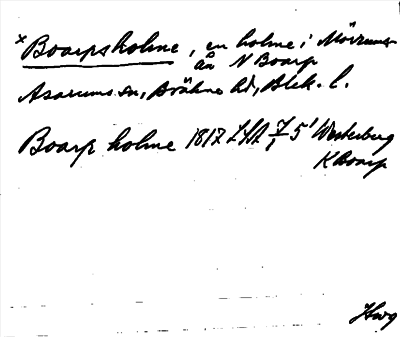 × Boarpsholme, en holme i Mörrums-
ån N Boarp
Asarums sn, Bräkne hd, Blek. l.
Boarps holme 1817 LSA 5' Westerberg
K Boarp
Hwg